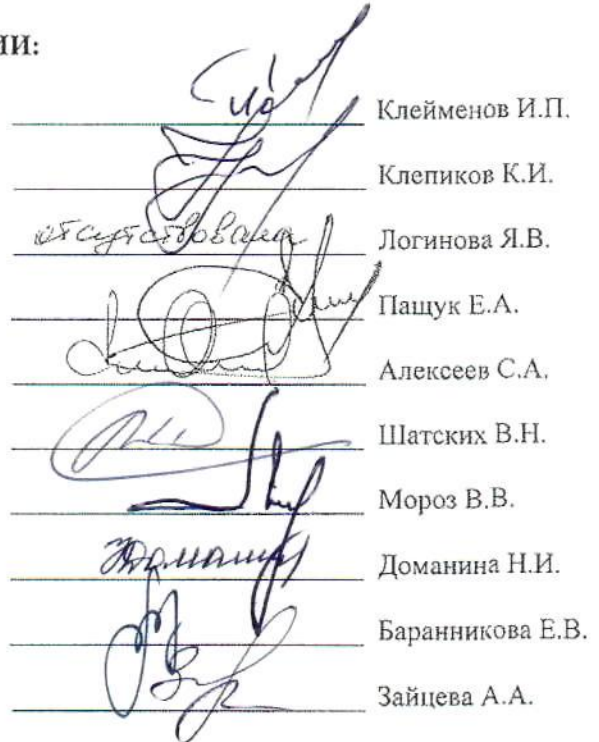 ИИ:
Клейменов И.П.
Клепиков К.И.
отсутствовала Логинова Я.В.
Пащук Е.А.
Алексеев С.А.
Шатских В.Н.
Мороз В.В.
Доманина Н.И.
Баранникова Е.В.
Зайцева А.А.